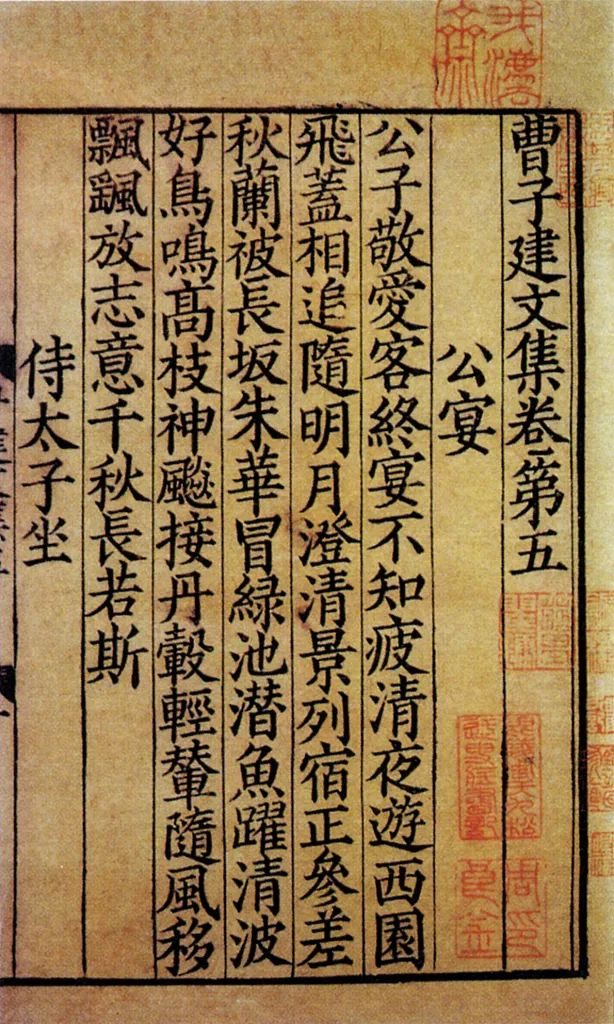 曹子建文集卷第五
公宴
公子敬愛客終宴不知疲清夜遊西園
飛蓋相追隨明月澄清景列宿正參差
秋蘭被長坂朱華冒緑池潜魚躍清波
好鳥鳴髙枝神飈接丹轂輕輦隨風移
飄颻放志意千秋長若斯
侍太子坐